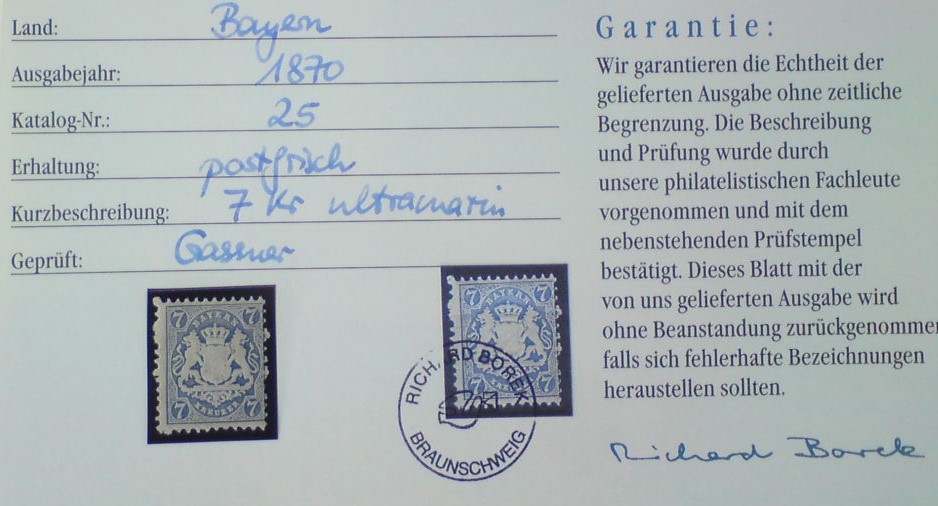 Land: Bayern
Ausgabejahr: 1870
Katalog-Nr.: 25
Erhaltung: postfrisch
Kurzbeschreibung: 7 Kr ultramarin
Geprüft: Gassner
7 7
BAYERN
7 KREUZER 7
7 7
BAYERN
7
RICHARD BOREK
BRAUNSCHWEIG
Garantie:
Wir garantieren die Echtheit der
gelieferten Ausgabe ohne zeitliche
Begrenzung. Die Beschreibung
und Prüfung wurde durch
unsere philatelistischen Fachleute
vorgenommen und mit dem
nebenstehenden Prüfstempel
bestätigt. Dieses Blatt mit der
von uns gelieferten Ausgabe wird
ohne Beanstandung zurückgenommen
falls sich fehlerhafte Bezeichnungen
heraustellen sollten.
Richard Borek